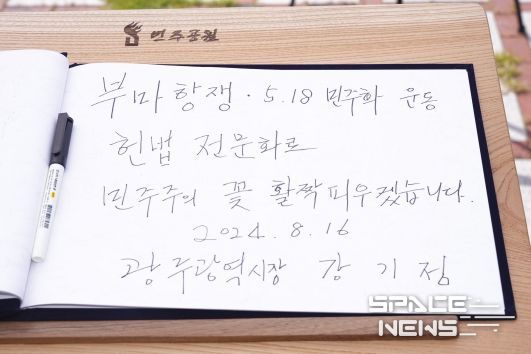 민주공원
부마항쟁·5.18 민주화 운동
헌법 전문화로
민주주의 꽃 활짝 피우겠습니다.
2024.8.16
광주광역시장 강기정
SPACE
NEWS